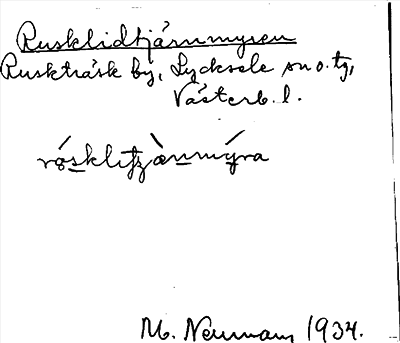 Rusklidtjärnmyren
Ruskträsk by, Lycksele sn o. tg,
Västerb. l.
M. Neuman, 1934.